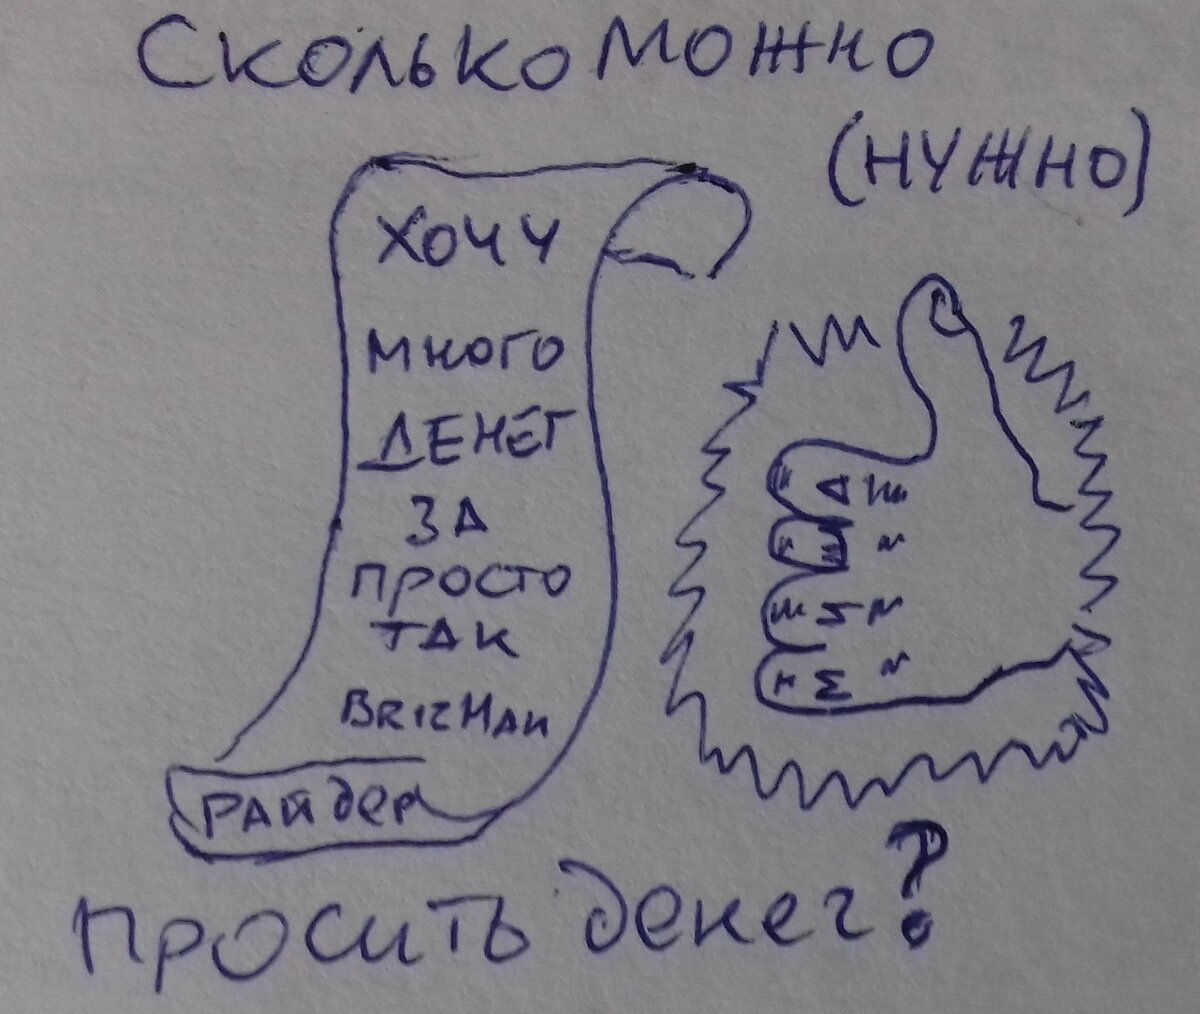 Сколько можно
(нужно)
Хочу
много
ДЕНЕГ
ЗА
просто
ТАК
BRIZMAN
РАЙдер
просить денег?